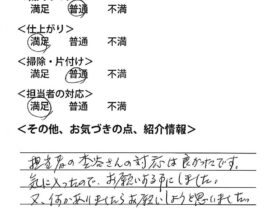 満足 普通 不満
<仕上がり>
満足 普通 不満
<掃除・片付け>
満足 普通 不満
<担当者の対応>
満足 普通 不満
<その他、お気づきの点、紹介情報>
担当者の さんの対応は良かったです。
気に入ったので、お願いする事にしました。
又、何かありましたらお願いしようと思いました。